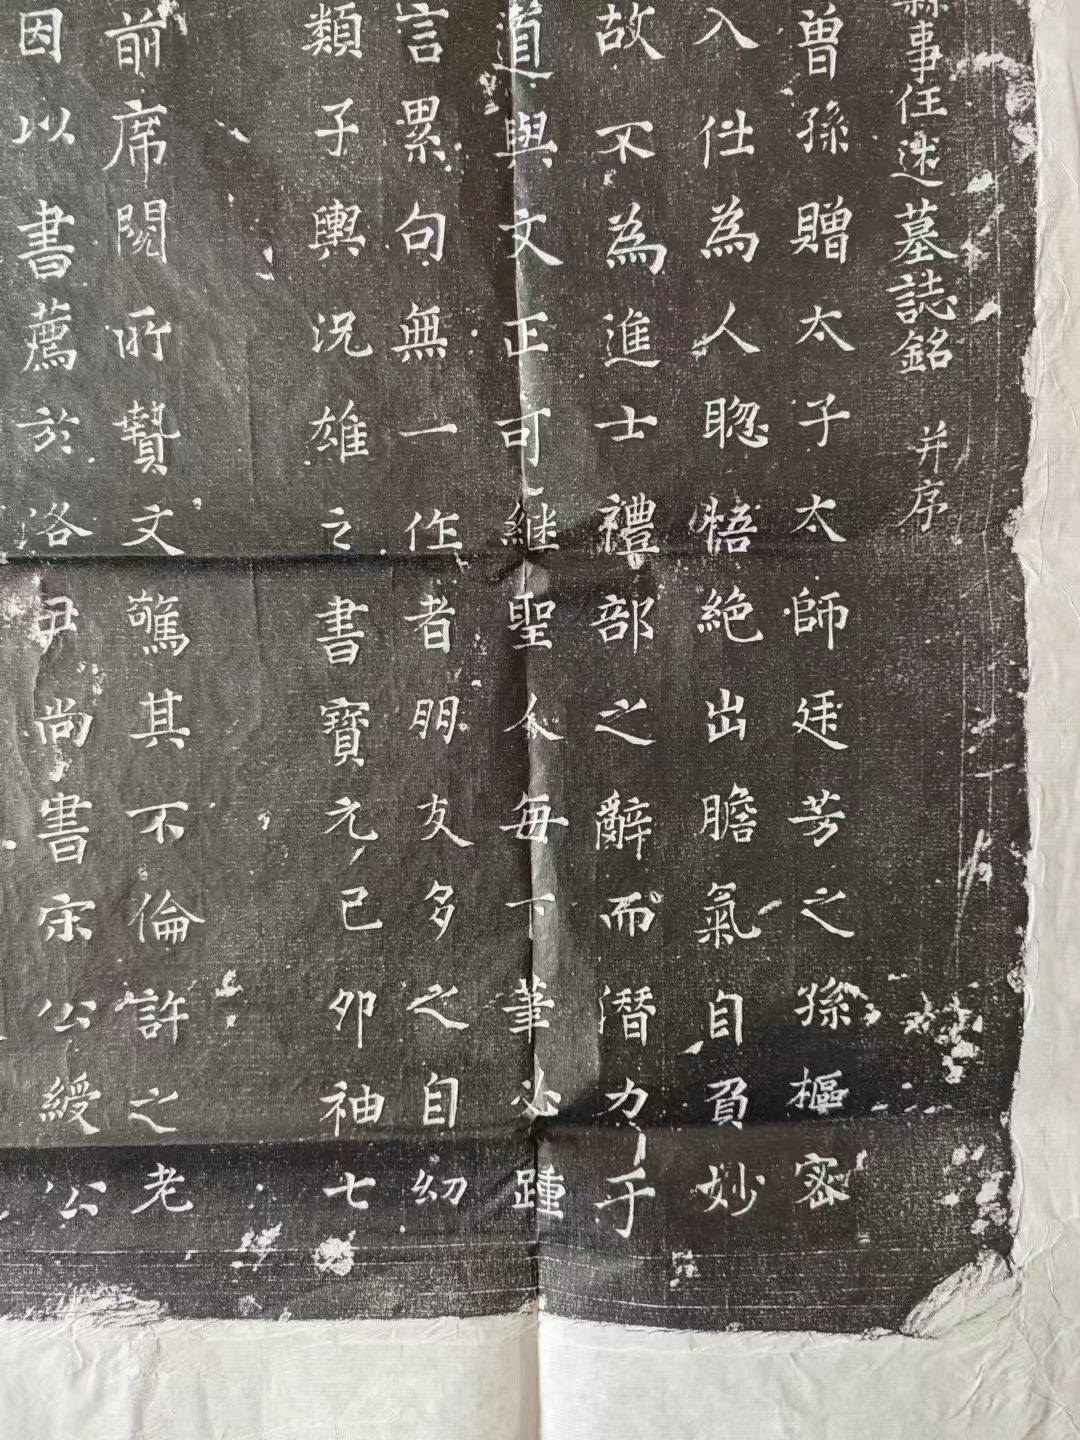 縣事任述墓誌銘 并序
曾孫贈太子太師廷芳之孫樞密
入仕為人聰悟絕出膽氣自負妙
故不為進士禮部之辭而潛力于
道與文正可継聖人每下筆必踵
言累句無一作者朋友多之自幼
類子輿況雄之書寶元己卯袖七
前席閱所贄文驚其不倫許之老
因以書薦於洛尹尚書宋公綬公